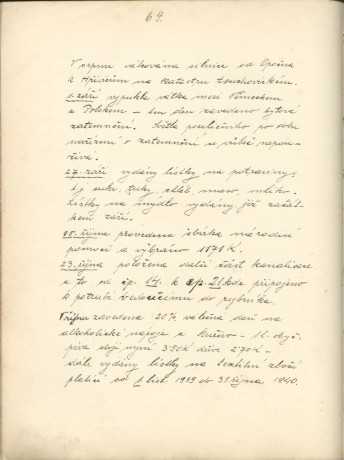 69.
V srpnu válcována silnice od Opočna
k Hřivicům na katastru touchovickém.
1. září vypukla válka mezi Německem
a Polskem – ten den zavedeno bytové
zatemnění. Světlo pouličního po dobu
nařízení o zatemnění se vůbec nepou-
žívá.
27. září vydány lístky na potraviny,
t.j. cukr, tuky, chléb, maso, mléko.
Lístky na mýdlo vydány již začát-
kem září.
15. října provedena sbírka národní
pomoci a vybráno 1871 K.
23. října položena další část kanalisace
a to od čp. 14. k čp. 21. kde připojeno
k potrubí vedoucímu do rybníka.
V říjnu zavedena 20% válečná daň na
alkoholické nápoje a kuřivo – 1 l. obyč.
piva stojí nyní 3·50 K dříve 2·70 K –
dále vydány lístky na textilní zboží
platící od 1. list. 1939 do 31. října 1940.